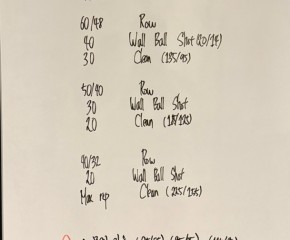 60/48 Row
40 Wall Ball Shot (20/14)
30 Clean (135/95)
50/40 Row
30 Wall Ball Shot
20 Clean
40/32 Row
20 Wall Ball Shot
Max rep Clean (225/155)